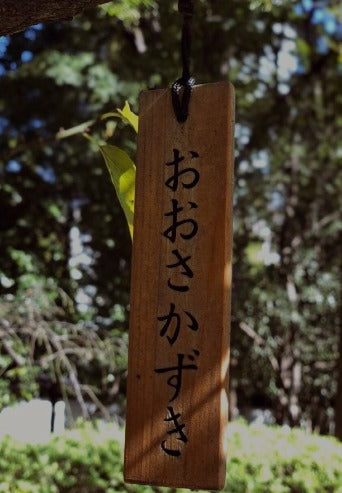 おおさかずき